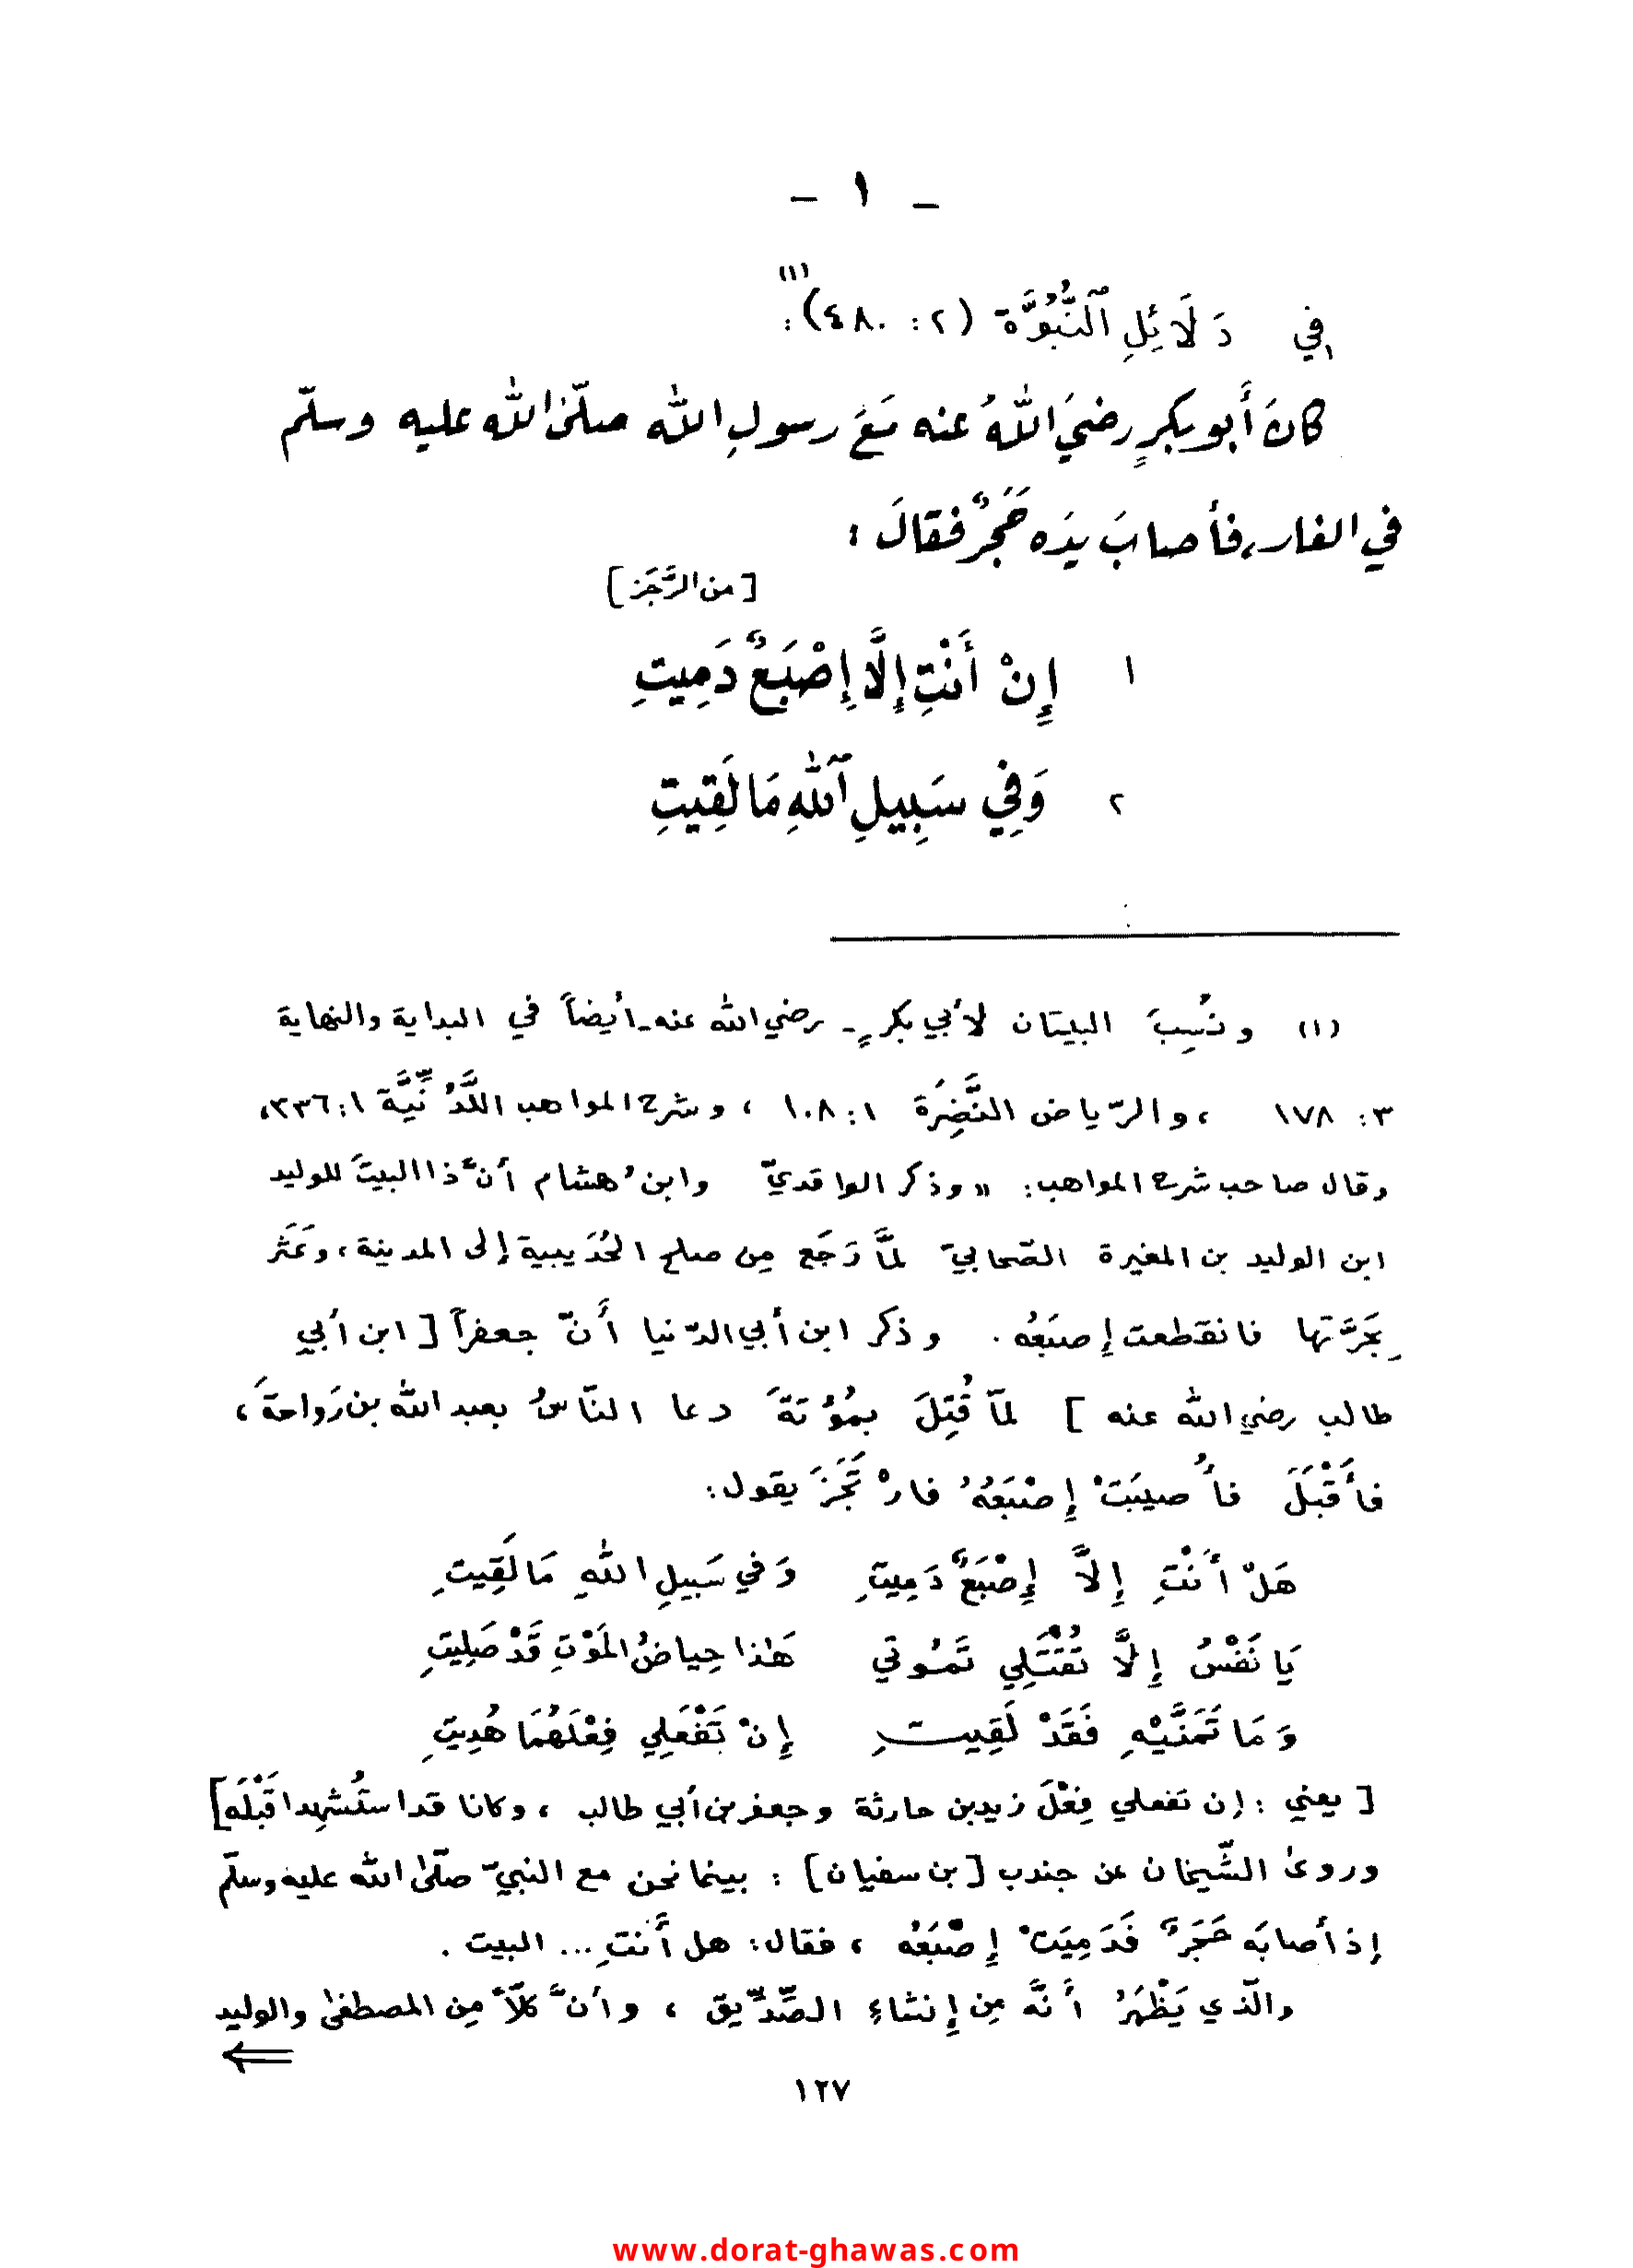 - ١ -
في دَلَائِلِ ٱلنُّبُوَّة (٢: ٤٨٠)(١):
كانَ أَبو بكرٍ رضيَ اللهُ عنه مَعَ رسولِ الله صلّىٰ الله عليه وسلّم
في الغار، فأصابَ يدَه حَجَرٌ فقالَ:
[من الرَّجَز]
١ إِنْ أَنْتِ إِلَّا إِصْبَعٌ دَمِيتِ
٢ وَفِي سَبِيلِ ٱللهِ مَا لَقِيتِ
(١) ونُسِبَ البيتان لأَبي بكرٍ - رضي الله عنه - أيضاً في البداية والنهاية
٣: ١٧٨ ، والرّياض النَّضِرَة ١: ١٠٨ ، وشرح المواهب اللَّدُنِّيَّة ١: ٣٣٦،
وقال صاحب شرح المواهب: «وذكر الواقديّ وابنُ هشام أنَّ ذا البيتَ للوليد
ابن الوليد بن المغيرة الصّحابيّ لمَّا رَجَع مِن صلح الحُدَيبية إلى المدينة، وعَثَر
بِحَرَّتها فانقطعت إِصبَعُه. وذكر ابن أبي الدّنيا أَنّ جعفراً [ابن أبي
طالب رضي الله عنه] لمّا قُتِلَ بمُؤْتَةَ دعا النّاسُ بعبد الله بن رَواحةَ،
فأَقْبَلَ فأُصيبَتْ إِصْبَعُهُ فارْتَجَزَ يقول:
هَلْ أَنْتِ إِلاَّ إِصْبَعٌ دَمِيتِ وَفي سَبيلِ اللهِ مَا لَقِيتِ
يَا نَفْسُ إِلاَّ تُقْتَلِي تَمُوتي هَٰذا حِياضُ المَوْتِ قَدْ صَلِيتِ
وَمَا تَمَنَّيْهِ فَقَدْ لَقِيتِ إِنْ تَفْعَلِي فِعْلَهُمَا هُدِيتِ
[يعني: إن تفعلي فِعْلَ زيد بن حارثة وجعفر بن أبي طالب ، وكانا قد استُشهِدا قَبْلَه]
وروىٰ الشّيخان عن جندب [بن سفيان]: بينما نحن مع النبيّ صلّىٰ الله عليه وسلّم
إذ أصابَه حَجَرٌ فَدَمِيَتْ إِصْبَعُه ، فقال: هل أَنتِ... البيت .
والّذي يَظْهَرُ أَنَّه مِن إِنشاءِ الصِّدِّيق ، وأنَّ كلّاً مِن المصطفىٰ والوليد
١٢٧
www.dorat-ghawas.com